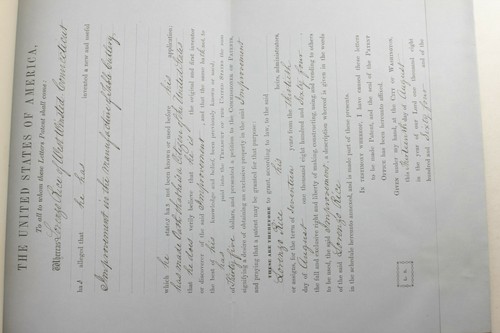 THE UNITED STATES OF AMERICA,
To all to whom these Letters Patent shall come:
Whereas Lorenzo Rice of West Winsted Connecticut
has alleged that he has invented a new and useful
Improvement in the Manufacture of Table Cutlery.
which he states has not been known or used before his application;
has made oath that he is a Citizen of the United States
that he does verily believe that he is the original and first inventor
or discoverer of the said Improvement, and that the same hath not, to
the best of his knowledge and belief, been previously known or used;
has paid into the TREASURY OF THE UNITED STATES the sum
of Thirty five dollars, and presented a petition to the COMMISSIONER OF PATENTS,
signifying a desire of obtaining an exclusive property in the said Improvement
and praying that a patent may be granted for that purpose:
THESE ARE THEREFORE to grant, according to law, to the said
Lorenzo Rice his heirs, administrators,
or assigns, for the term of seventeen years from the thirtieth
day of August one thousand eight hundred and sixty four
the full and exclusive right and liberty of making, constructing, using and vending to others
to be used, the said Improvement, a description whereof is given in the words
of the said Lorenzo Rice
in the schedule hereunto annexed, and is made part of these presents.
IN TESTIMONY WHEREOF, I have caused these letters
to be made Patent, and the seal of the PATENT
OFFICE has been hereunto affixed.
GIVEN under my hand, at the CITY OF WASHINGTON,
this day of August
in the year of our Lord one thousand eight
hundred and sixty four and of the